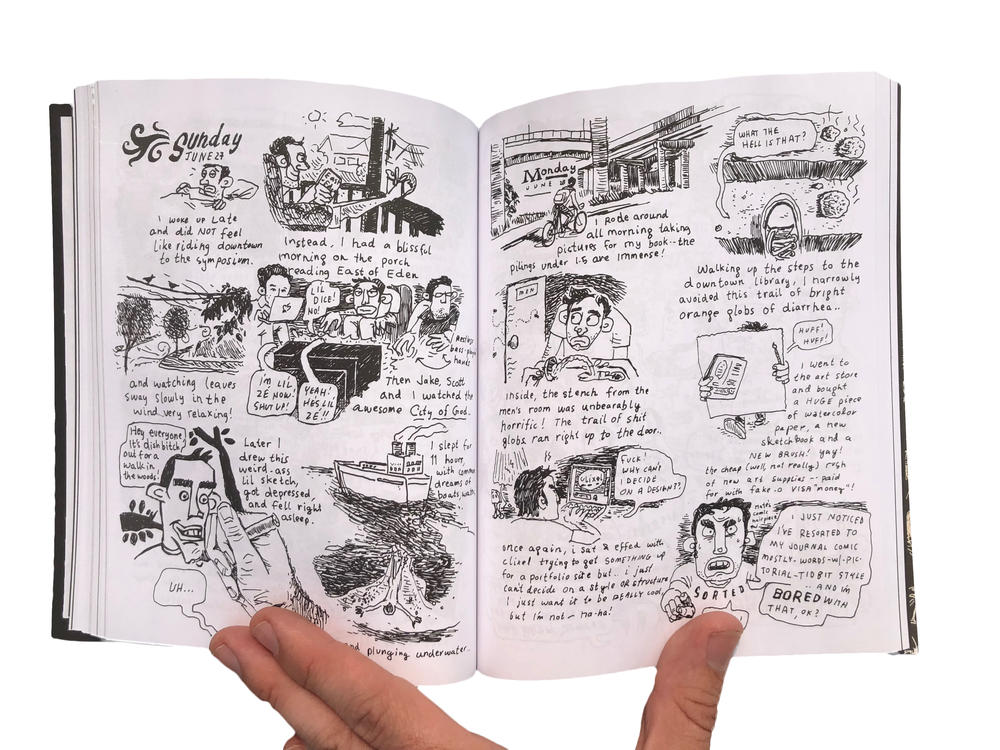 Sunday
JUNE 27
I woke up Late
and did NOT feel
like riding downtown
to the symposium.
Instead, I had a blissful
morning on the porch
reading East of Eden
and watching leaves
sway slowly in the
wind. very relaxing!
LIL
DICE!
NO!
I'M LIL
ZÉ NOW!
SHUT UP!
YEAH!
HES LIL
ZÉ!!
hands
Then Jake, Scott
and I watched the
awesome City of God.
Hey everyone,
It's dishbitch,
out for a
walk in
the woods!
UH...
Later I
drew this
weird-ass
lil sketch,
got depressed,
and fell right
asleep.
I slept for
11 hours,
with
dreams of
boats
and plunging underwater..
Monday
JUNE 28
I Rode around
all morning taking
pictures for my book--the
pilings under I-5 are immense!
WHAT THE
HELL IS THAT?
Walking up the steps to the
downtown library, I narrowly
avoided this trail of bright
orange globs of diarrhea..
MEN
Inside, the stench from the
men's room was unbearably
horrific! The trail of shit
globs ran right up to the door..
HUFF!
HUFF!
I went to
the art store
and bought
a HUGE piece
of watercolor
paper, a new
sketchbook and a
NEW BRUSH! yay!
the cheap (well, not really) rush
of new art supplies -- paid
for with fake-o VISA "money"!
FUCK!
WHY CAN'T
I DECIDE
ON A DESIGN??
once again, i sat & effed with
clixel trying to get SOMETHING up
for a portfolio site but.. i just
can't decide on a style OR structure
I just want it to be REALLY cool,
but I'm not -- ha-ha!
SORTED
I JUST NOTICED
I'VE RESORTED TO
MY JOURNAL COMIC
MOSTLY-WORDS-W/-PIC-
TORIAL-TIDBIT STYLE
.. AND IM
BORED WITH
THAT, OK?